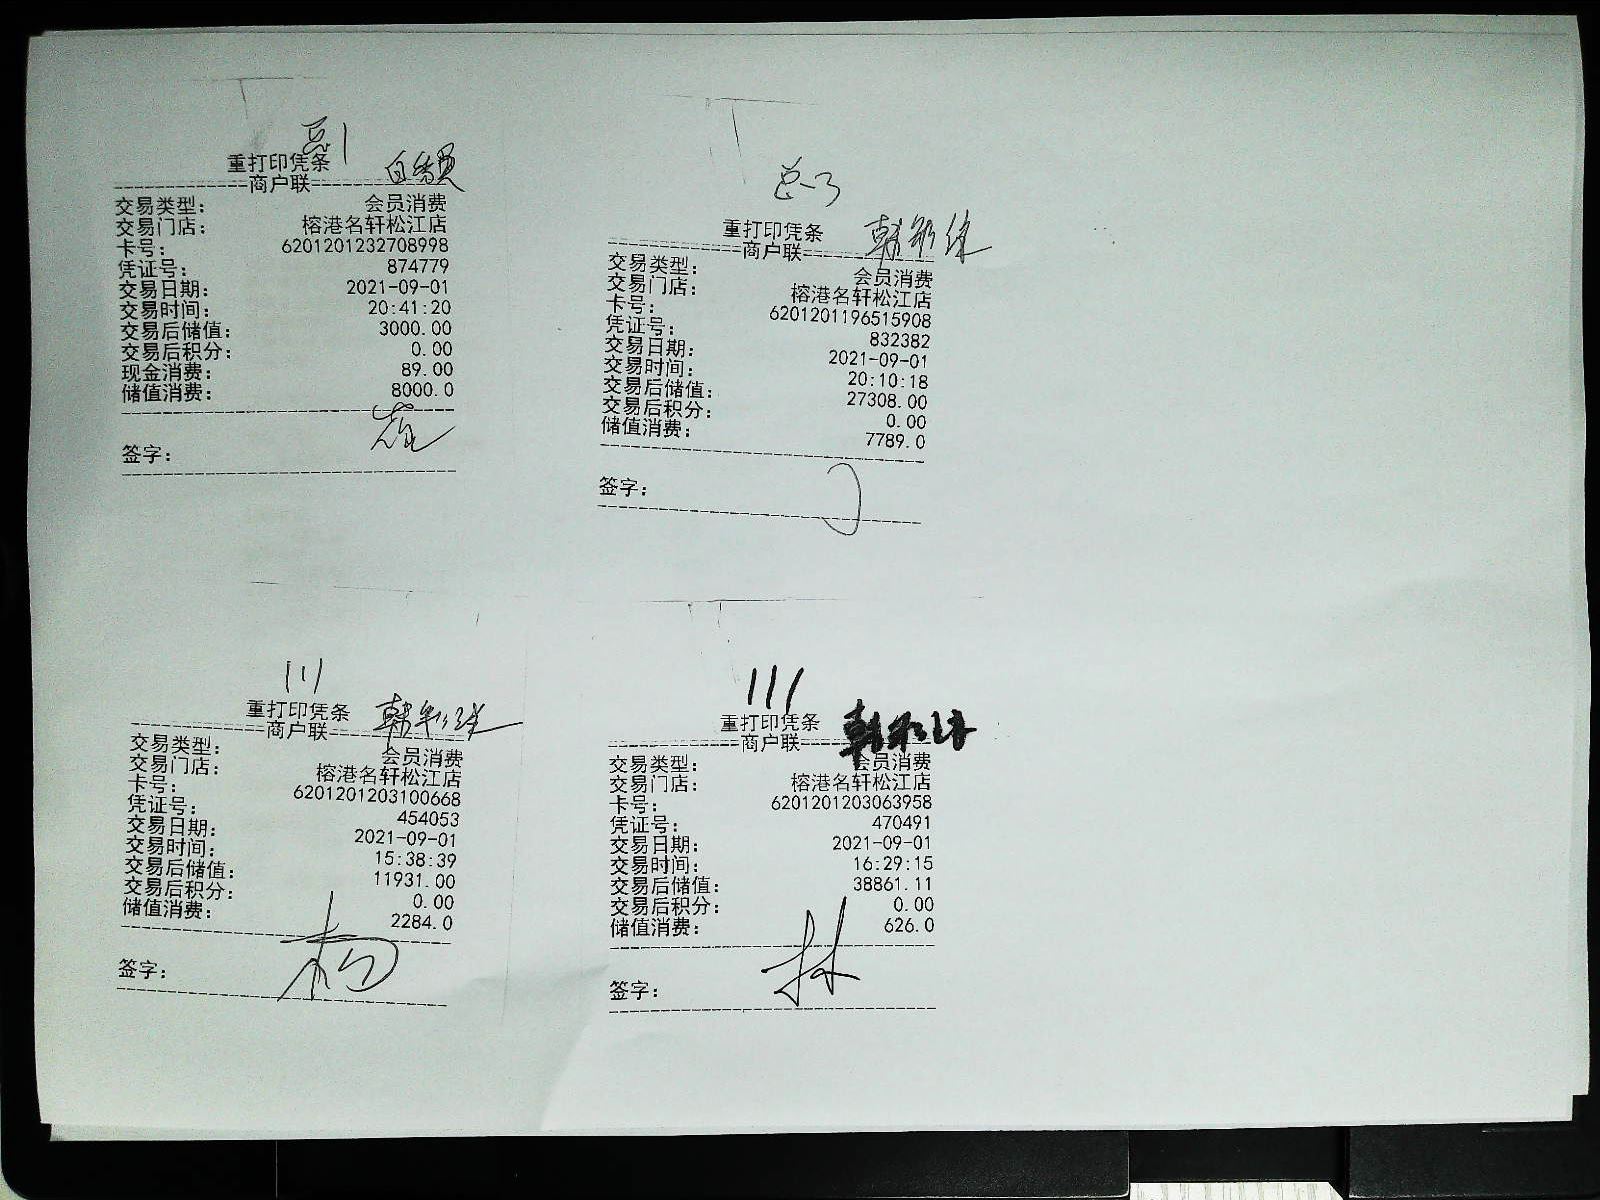 重打印凭条
商户联
交易类型： 会员消费
交易门店： 榕港名轩松江店
卡号： 6201201232708998
凭证号： 874779
交易日期： 2021-09-01
交易时间： 20:41:20
交易后储值： 3000.00
交易后积分： 0.00
现金消费： 89.00
储值消费： 8000.0
签字：
总-3
重打印凭条
商户联
交易类型： 会员消费
交易门店： 榕港名轩松江店
卡号： 6201201196515908
凭证号： 832382
交易日期： 2021-09-01
交易时间： 20:10:18
交易后储值： 27308.00
交易后积分： 0.00
储值消费： 7789.0
签字：
111
重打印凭条
商户联
交易类型： 会员消费
交易门店： 榕港名轩松江店
卡号： 6201201203100668
凭证号： 454053
交易日期： 2021-09-01
交易时间： 15:38:39
交易后储值： 11931.00
交易后积分： 0.00
储值消费： 2284.0
签字： 杨
111
重打印凭条
商户联
交易类型： 会员消费
交易门店： 榕港名轩松江店
卡号： 6201201203063958
凭证号： 470491
交易日期： 2021-09-01
交易时间： 16:29:15
交易后储值： 38861.11
交易后积分： 0.00
储值消费： 626.0
签字： 林